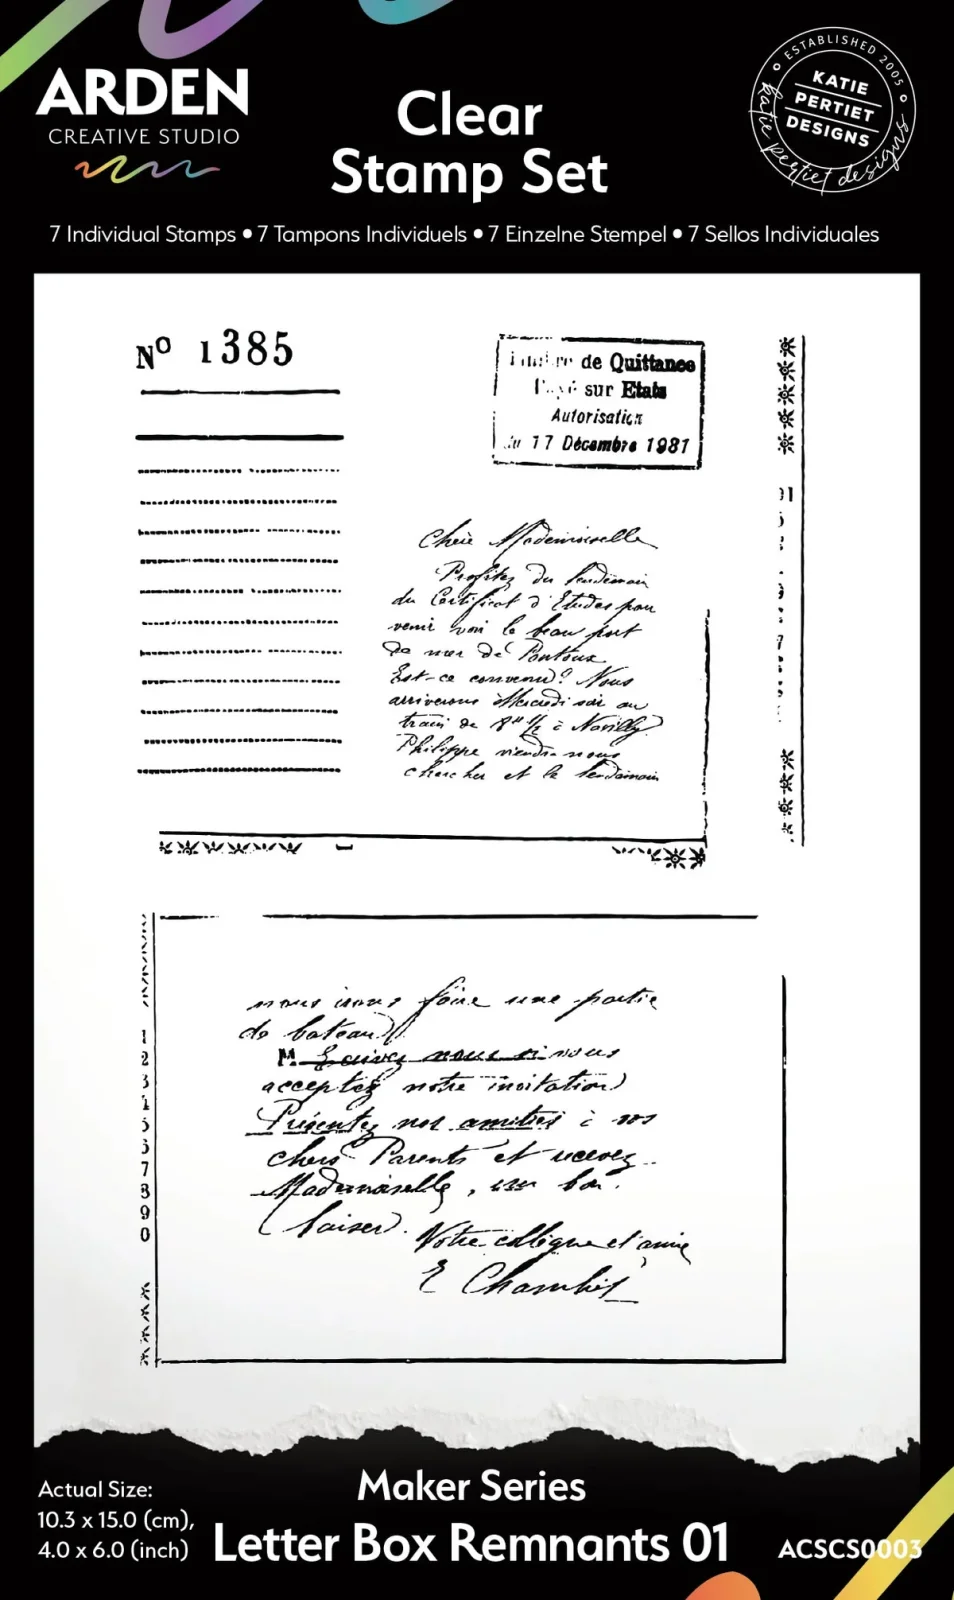 ARDEN
CREATIVE STUDIO
Clear
Stamp Set
ESTABLISHED 2005
KATIE
PERTIET
DESIGNS
katie pertiet designs
7 Individual Stamps • 7 Tampons Individuels • 7 Einzelne Stempel • 7 Sellos Individuales
Nº 1385
de Quittance
sur Etats
Autorisation
du 17 Décembre 1981
Chère Mademoiselle
Profitez du lendemain
du Certificat d'Etudes pour
venir voir le beau port
de mer de Pontoux
Est-ce convenu? Nous
arriverons Mercredi soir au
train de 8h 1/2 à
Philippe viendra nous
chercher et le lendemain
nous irons faire une partie
de bateau
M. Ecrivez nous si vous
acceptez notre invitation
Présentez nos amitiés à vos
chers Parents et recevez
Mademoiselle, un bon
baiser.
Votre collègue et amie
E Chambet
1
2
3
4
5
6
7
8
9
0
Actual Size:
10.3 x 15.0 (cm),
4.0 x 6.0 (inch)
Maker Series
Letter Box Remnants 01
ACSCS0003